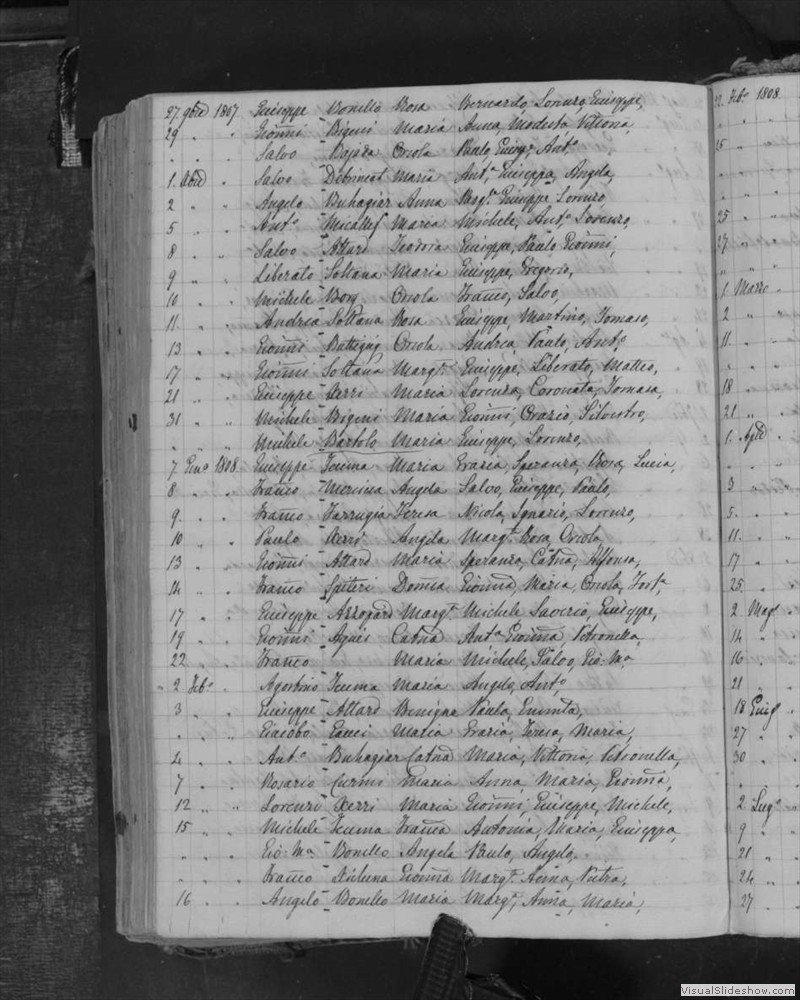 27. 9bre 1807 Giuseppe Bonello Rosa Bernardo, Lorenzo, Giuseppe,
29 " " Gioñi Bigeni Maria Anna, Modesta, Vittoria,
" " " Salvo Bajada Orsola Paulo, Antº
1. Xbre " Salvo Debrincat Maria Antª, Giuseppa, Angela,
2 " " Angelo Buhagiar Anna Giuseppe Lorenzo,
5 " " Antº Micallef Maria Michele, Antº Lorenzo,
8 " " Salvo Attard Teodora Giuseppe, Paulo, Gioñi,
9 " " Liberato Soltana Maria Giuseppe, Gregorio,
10 " " Michele Borg Orsola Franco, Salvo,
11 " " Andrea Soltana Rosa Giuseppe, Martino, Tomaso,
13 " " Gioñi Buttigig Orsola Andrea, Paulo, Antº
17 " " Gioñi Soltana Margª Giuseppe, Liberato, Matteo,
21 " " Giuseppe Xerri Maria Lorenza, Coronata, Tomasa,
31 " " Michele Bigeni Maria Gioñi, Orazio, Silvestro,
" " " Michele Bartolo Maria Giuseppe, Lorenzo,
7 Genº 1808. Giuseppe Teuma Maria Grazia, Speranza, Rosa, Lucia,
8 " " Franco Mercieca Angela Salvo, Giuseppe, Paulo,
9 " " Franco Farrugia Teresa Nicola, Ignazio, Lorenzo,
10 " " Paulo Xerri Angela Margª Rosa, Orsola,
13 " " Gioñi Attard Maria Speranza, Catña, Alfonsa,
14 " " Franco Spiteri Domca Gioñna, Maria, Orsola, Fortª
17 " " Giuseppe Azzopard Margª Michele Saverio, Giuseppe,
19 " " Gioñi Agius Catña Antª Gioñna Petronella,
22 " " Franco Maria Michele, Salvo, Gio: Mª
2 Febº " Agostino Teuma Maria Angelo, Antº
3 " " Giuseppe Attard Benigna Paula,
" " " Giacobo Gauci Maria Grazia, Teresa, Maria,
4 " " Antº Buhagiar Catña Maria, Vittoria, Petronella,
7 " " Rosario Curmi Maria Anna, Maria, Gioñna,
12 " " Lorenzo Xerri Maria Gioñi, Giuseppe, Michele,
15 " " Michele Teuma Franca Antonia, Maria, Giuseppa,
" " " Gio: Mª Bonello Angela Paulo, Angelo,
" " " Franco Xiluna Gioñna Margª Anna, Pietra,
16 " " Angelo Bonello Maria Margª, Anna, Maria,
22. Febº 1808.
25 " "
25 " "
27. " "
1 Marzo "
2 " "
11. " "
18 " "
21 " "
1. Aple "
3 " "
5. " "
11. " "
17 " "
25. " "
2. Magº
14 " "
16 " "
21 " "
18 Giugº
27 " "
30 " "
2. Lugº "
9 " "
21 " "
24 " "
27 " "
VisualSlideshow.com